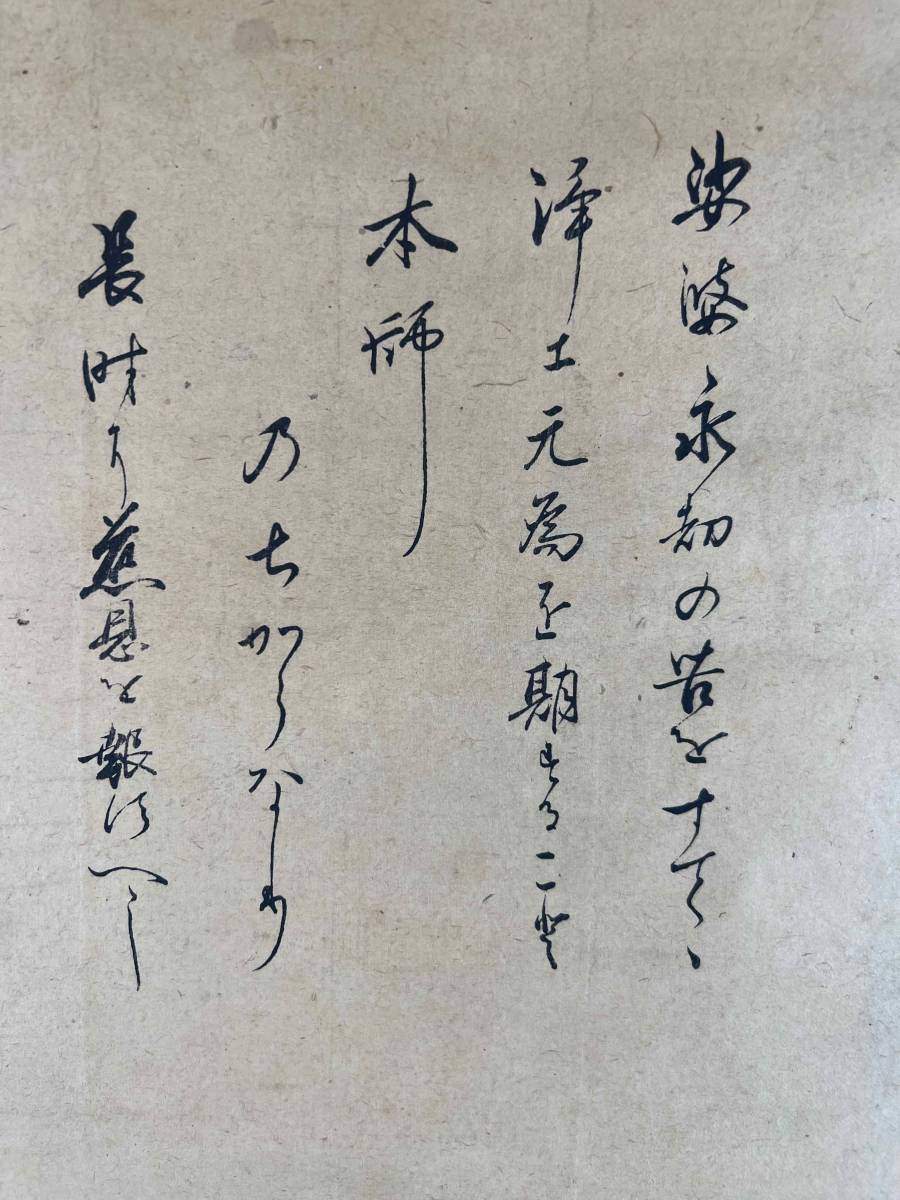 娑婆永劫の苦をすてゝ
浄土元為を期すること
本師
のちからなり
長時に慈恩を報ずへし